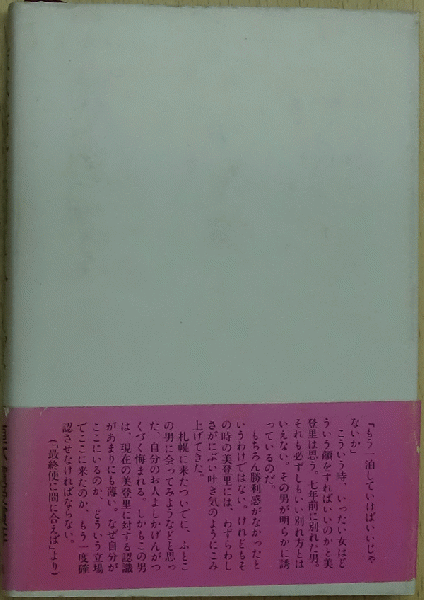 「もう一泊していけばいいじゃ
ないか」
こういう時、いったい女はど
ういう顔をすればいいのかと美
登里は思う。七年前に別れた男。
それも必ずしもいい別れ方とは
いえない。その男が明らかに誘
っているのだ。
もちろん勝利感がなかったと
いうわけではない。けれどもそ
の時の美登里には、わずらわし
さがにぶい吐き気のようにこみ
上げてきた。
札幌に来たついでに、ふとこ
の男に会ってみようなどと思っ
た、自分のお人よしかげんがつ
くづく悔まれる。しかもこの男
は、現在の美登里に対する認識
があまりにも薄い。なぜ自分が
ここにいるのか、どういう立場
でここに来たのか、もう一度確
認させなければならない。
(「最終便に間に合えば」より)